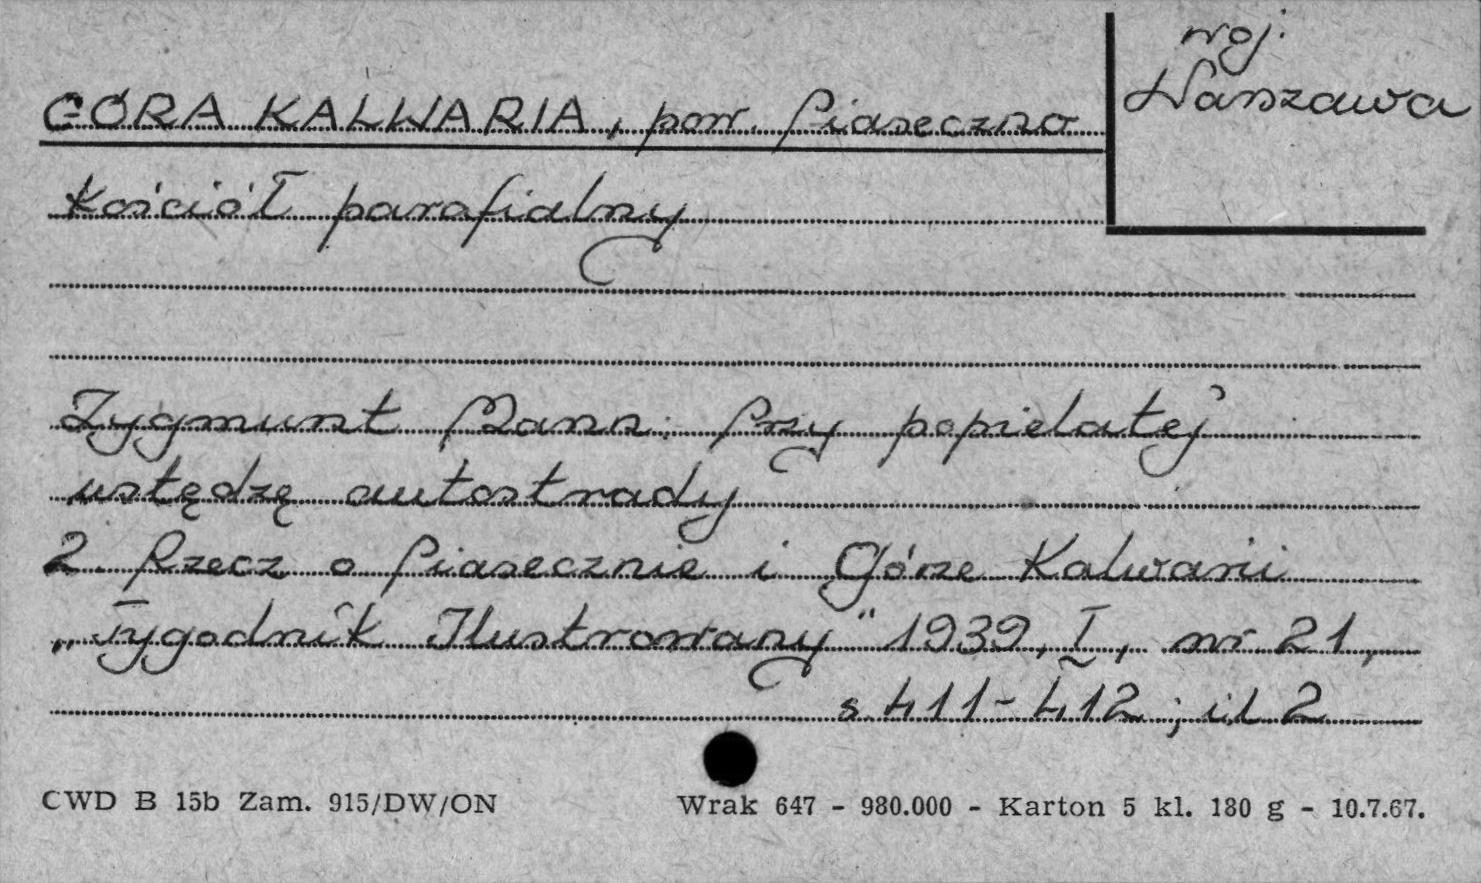 woj.
Warszawa
GÓRA KALWARIA, pow. Piaseczno
Kościół parafialny
Zygmunt Mann: Przy popielatej
wstędzę autostrady
2. Rzecz o Piasecznie i Górze Kalwarii
„Tygodnik Ilustrowany" 1939, I, nr 21,
s. 411-412; il 2
CWD B 15b Zam. 915/DW/ON Wrak 647 - 980.000 - Karton 5 kl. 180 g - 10.7.67.